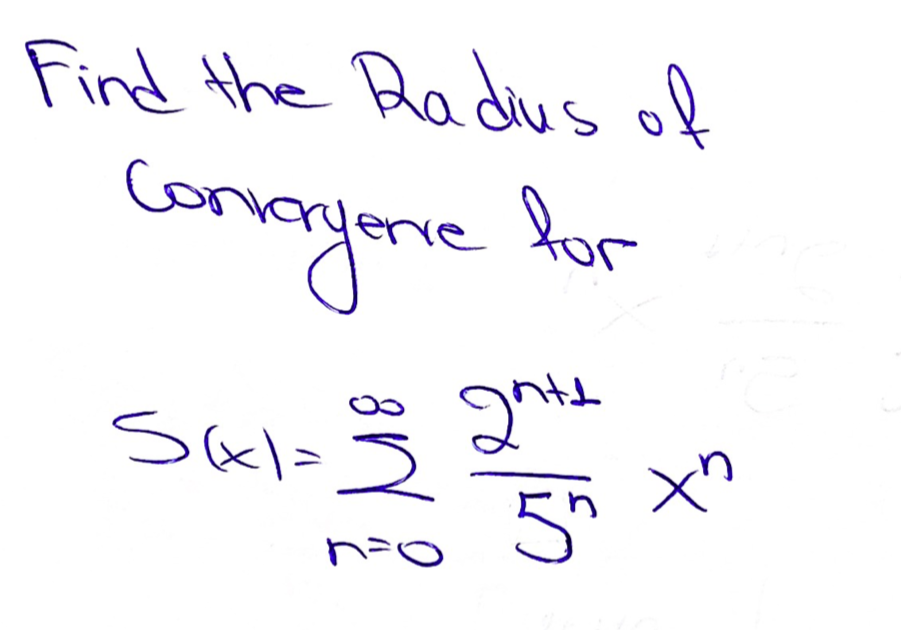 Find the Radius of
Convergence for
S(x) = ∞ Σ n=0 2^{n+1} / 5^n x^n